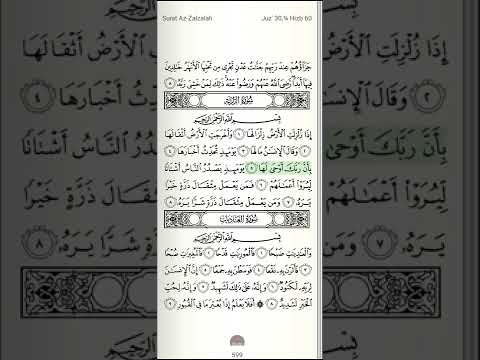 Surat Az-Zalzalah Juz' 30,¼ Hizb 60
جَزَآؤُهُمْ عِندَ رَبِّهِمْ جَنَّٰتُ عَدْنٍ تَجْرِى مِن تَحْتِهَا ٱلْأَنْهَٰرُ خَٰلِدِينَ
فِيهَآ أَبَدًا رَّضِىَ ٱللَّهُ عَنْهُمْ وَرَضُوا۟ عَنْهُ ذَٰلِكَ لِمَنْ خَشِىَ رَبَّهُۥ ٨
سُورَةُ الزَّلْزَلَةِ
بِسْمِ ٱللَّهِ ٱلرَّحْمَٰنِ ٱلرَّحِيمِ
إِذَا زُلْزِلَتِ ٱلْأَرْضُ زِلْزَالَهَا ١ وَأَخْرَجَتِ ٱلْأَرْضُ أَثْقَالَهَا
٢ وَقَالَ ٱلْإِنسَٰنُ مَا لَهَا ٣ يَوْمَئِذٍ تُحَدِّثُ أَخْبَارَهَا ٤
بِأَنَّ رَبَّكَ أَوْحَىٰ لَهَا ٥ يَوْمَئِذٍ يَصْدُرُ ٱلنَّاسُ أَشْتَاتًا
لِّيُرَوْا۟ أَعْمَٰلَهُمْ ٦ فَمَن يَعْمَلْ مِثْقَالَ ذَرَّةٍ خَيْرًا
يَرَهُۥ ٧ وَمَن يَعْمَلْ مِثْقَالَ ذَرَّةٍ شَرًّا يَرَهُۥ ٨
سُورَةُ العَادِيَاتِ
بِسْمِ ٱللَّهِ ٱلرَّحْمَٰنِ ٱلرَّحِيمِ
وَٱلْعَٰدِيَٰتِ ضَبْحًا ١ فَٱلْمُورِيَٰتِ قَدْحًا ٢ فَٱلْمُغِيرَٰتِ صُبْحًا
٣ فَأَثَرْنَ بِهِۦ نَقْعًا ٤ فَوَسَطْنَ بِهِۦ جَمْعًا ٥ إِنَّ ٱلْإِنسَٰنَ
لِرَبِّهِۦ لَكَنُودٌ ٦ وَإِنَّهُۥ عَلَىٰ ذَٰلِكَ لَشَهِيدٌ ٧ وَإِنَّهُۥ لِحُبِّ
ٱلْخَيْرِ لَشَدِيدٌ ٨ ۞ أَفَلَا يَعْلَمُ إِذَا بُعْثِرَ مَا فِى ٱلْقُبُورِ ٩
599